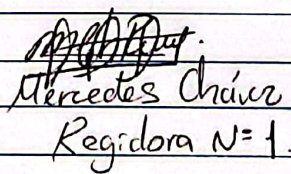 Mercedes Chávez
Regidora N=1.